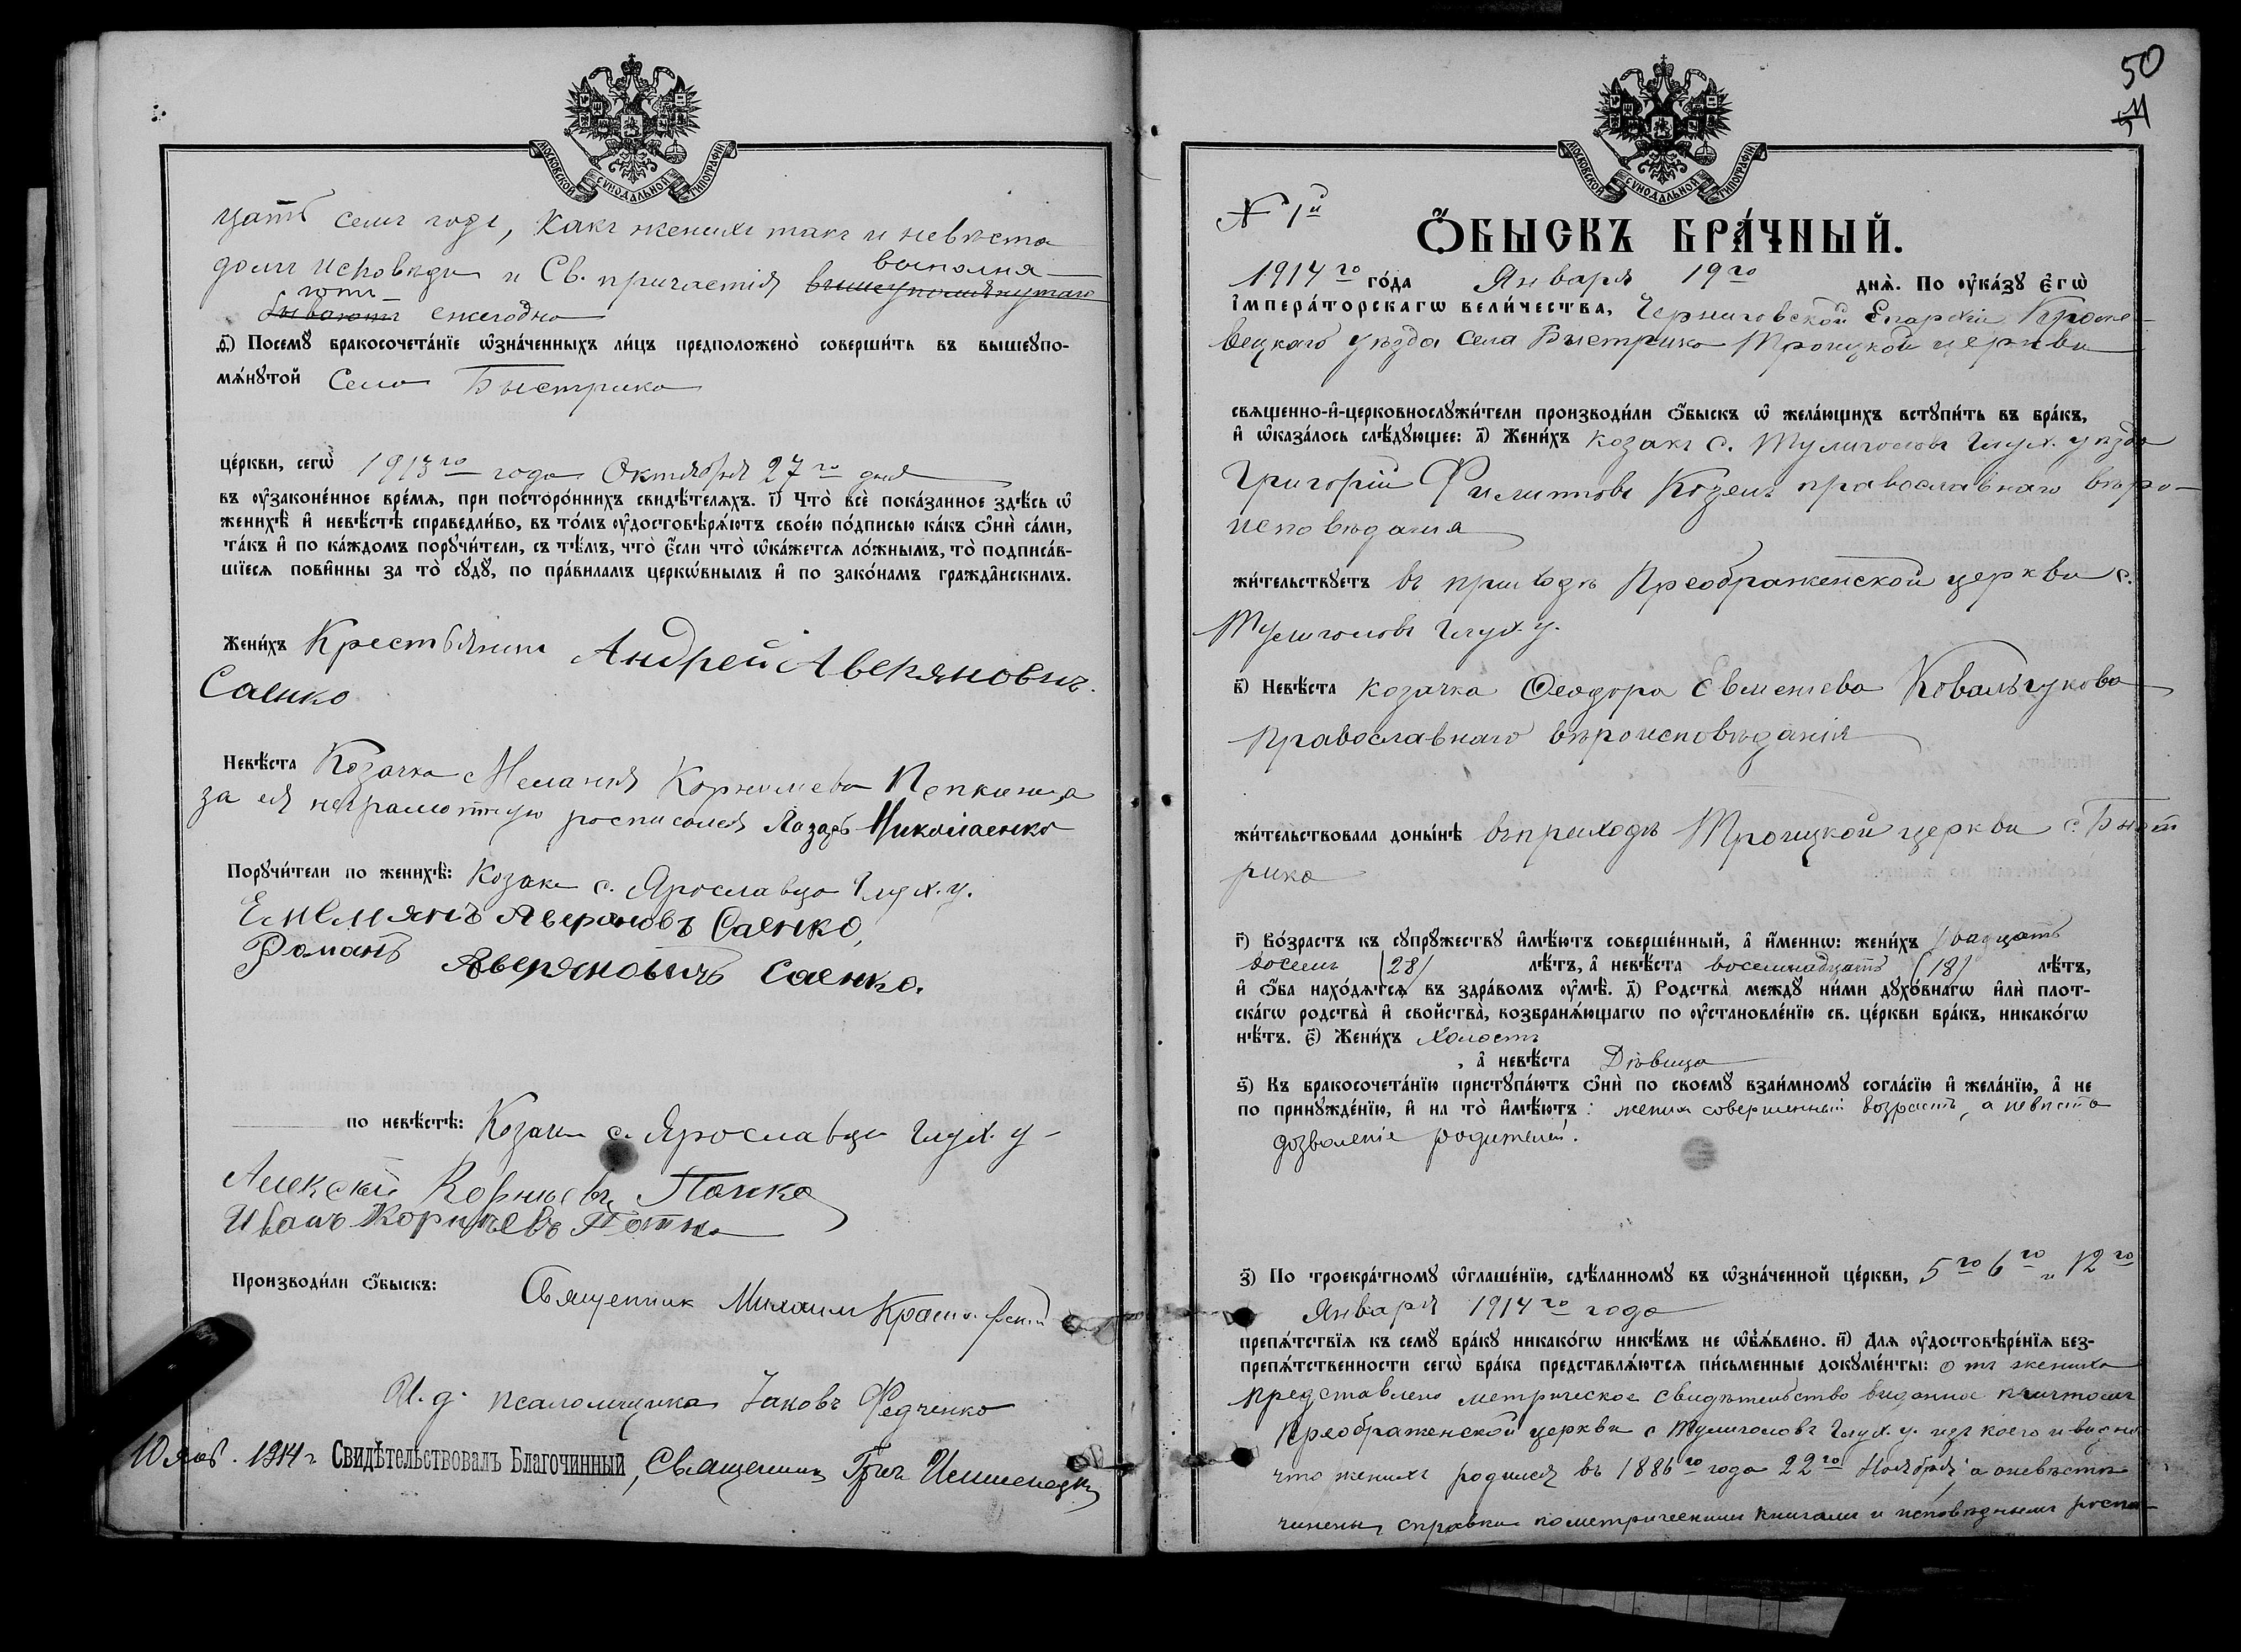 МОСКОВСКОЙ СѴНОДАЛЬНОЙ ТИПОГРАФІИ
цать семь годъ, какъ женихъ такъ и невѣста
долгъ исповѣди и Св. причастія выполня-
ютъ ежегодно
д҃і) Посемꙋ̀ бракосочета́нїе ѡ҆зна́ченныхъ ли́цъ предположено̀ соверши́ть въ вышеупо-
мѧ́нꙋтой Села Быстрика
це́ркви, сегѡ̀ 1913го года Октября 27го дня
въ оу҆законе́нное вре́мѧ, при посторо́ннихъ свидѣ́телѧхъ. і҃) Что̀ всѐ пока́занное здѣ́сь ѡ҆
женихѣ̀ и҆ невѣ́стѣ справедли́во, въ то́мъ оу҆достовѣрѧ́ютъ свое́ю по́дписью ка́къ ѻ҆нѝ са́ми,
та́къ и҆ по ка́ждомъ порꙋчи́тели, съ тѣ́мъ, что̀ є҆́сли что̀ ѡ҆ка́жетсѧ ло́жнымъ, то̀ подписа́в-
шїесѧ пови́нны за то̀ сꙋдꙋ̀, по пра́виламъ церкѡ́внымъ и҆ по зако́намъ гражда́нскимъ.
Жени́хъ Крестьянинъ Андрей Аверяновичъ
Саенко
Невѣ́ста Козачка Меланія Корнилиева
за ея неграмотную росписался Лазарь Николаенко
Порꙋчи́тели по женихѣ̀: Козаки с. Ярославца Глух. у.
Емельянъ Аверяновъ Саенко,
Романъ Аверяновичъ Саенко.
по невѣ́стѣ: Козаки с. Ярославца Глух. у-
Алексѣй Корніевъ
Иванъ Корніевъ
Производи́ли ѻ҆́быскъ: Священник Михаилъ
И. д. псаломщика Іаковъ Федченко
10 янв. 1914 г Свидѣтельствовалъ Благочинный, Священникъ Григ.
50
МОСКОВСКОЙ СѴНОДАЛЬНОЙ ТИПОГРАФІИ
№ 1й
Ѻ҆́БЫСКЪ БРА́ЧНЫЙ.
1914го го́да Января 19го днѧ̀. По оу҆ка́зꙋ Є҆гѡ̀
І҆мпера́торскагѡ вели́чества, Черниговской Епархіи Кроле-
вецкаго уѣзда села Быстрика Троицкой церкви
свѧщенно-и҆-церковнослꙋжи́тели производи́ли ѻ҆́быскъ ѡ҆ жела́ющихъ встꙋпи́ть въ бра́къ,
и҆ ѡ҆каза́лось слѣ́дꙋющее: а҃) Жени́хъ козакъ с. Тулиголовъ Глух. уѣзда
Григорій Филипповъ Козелъ православнаго вѣро-
исповѣданія
жи́тельствꙋетъ въ приходѣ Преображенской церкви с.
Тулиголовъ Глух. у.
в҃) Невѣ́ста козачка Ѳеодора Евменіева Ковальчукова
православнаго вѣроисповѣданія
жи́тельствовала доны́нѣ въ приходѣ Троицкой церкви с. Быст
рика
г҃) Во́зрастъ къ сꙋпрꙋ́жествꙋ и҆мѣ́ютъ соверше́нный, а҆ и҆́меннѡ: жени́хъ двадцать
восемь (28) лѣ́тъ, а҆ невѣ́ста восемнадцать (18) лѣ́тъ,
и҆ ѻ҆́ба нахо́дѧтсѧ въ здра́вомъ оу҆мѣ̀. д҃) Родства̀ междꙋ ни́ми дꙋхо́внагѡ и҆лѝ плот-
ска́гѡ родства̀ и҆ сво́йства, возбранѧ́ющагѡ по оу҆становле́нїю св. це́ркви бра́къ, никако́гѡ
нѣ́тъ. є҃) Жени́хъ Холостъ
, а҆ невѣ́ста Дѣвица
ѕ҃) Къ бракосочета́нїю пристꙋпа́ютъ ѻ҆нѝ по своемꙋ̀ взаи́мномꙋ согла́сїю и҆ жела́нїю, а҆ не
по принꙋжде́нїю, и҆ на то̀ и҆мѣ́ютъ: жених совершенный возрастъ, а невѣста
дозволеніе родителей.
з҃) По троекра́тномꙋ ѡ҆глаше́нїю, сдѣ́ланномꙋ въ ѡ҆зна́ченной це́ркви, 5го 6го и 12го
Января 1914го года
препѧ́тствїѧ къ семꙋ̀ бра́кꙋ никако́гѡ никѣ́мъ не ѡ҆б̾ѧ́влено. и҃) Для оу҆достовѣре́нїѧ без-
препѧ́тственности сегѡ̀ бра́ка представлѧ́ютсѧ пи́сьменные докꙋме́нты: отъ жениха
представлено метрическое свидѣтельство выданное причтомъ
Преображенской церкви с Тулиголовъ Глух. у. изъ коего и видно
что женихъ родился въ 1886го года 22го Ноября, а о невѣстѣ
чинены справки по метрическим книгамъ и исповѣднымъ роспи-